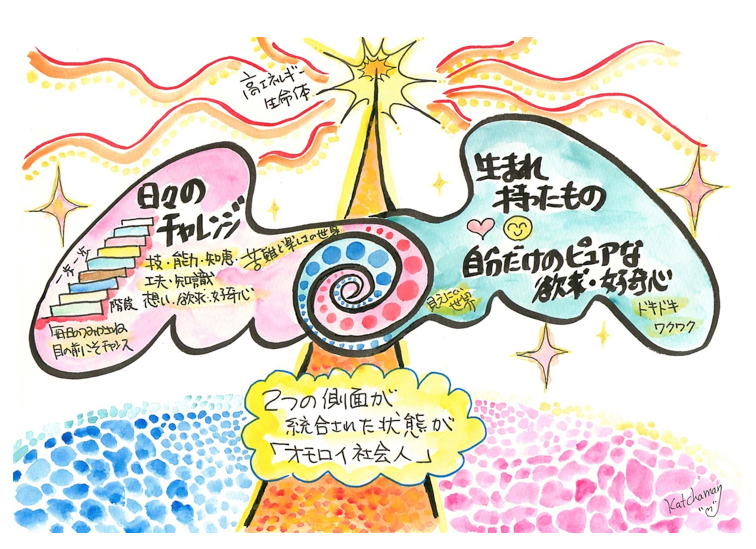 高エネルギー
生命体
日々の
チャレンジ
一歩一歩
階段
技・能力・知恵・
工夫・知識
想い、欲求・好奇心
苦難と楽しさの世界
毎日のつみかさね
目の前にこそチャンス
生まれ
持ったもの
自分だけのピュアな
欲求・好奇心
見えにくい
世界
ドキドキ
ワクワク
2つの側面が
統合された状態が
「オモロイ社会人」
Katchaman